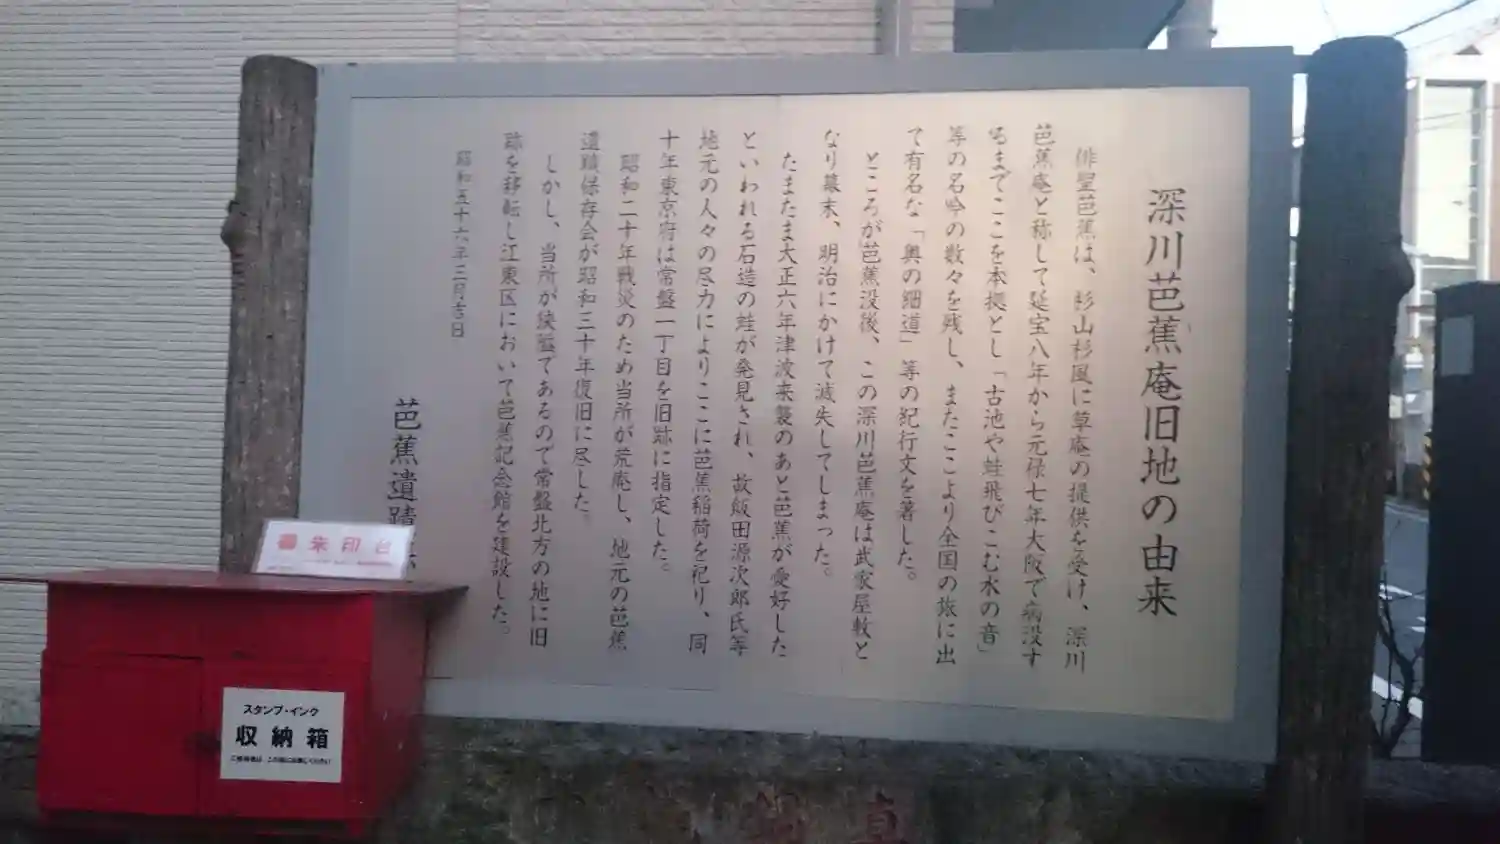 深川芭蕉庵旧地の由来
俳聖芭蕉は、杉山杉風に草庵の提供を受け、深川
芭蕉庵と称して延宝八年から元禄七年大阪で病没す
るまでここを本拠とし「古池や蛙飛びこむ水の音」
等の名吟の数々を残し、またここより全国の旅に出
て有名な「奥の細道」等の紀行文を著した。
ところが芭蕉没後、この深川芭蕉庵は武家屋敷と
なり幕末、明治にかけて滅失してしまった。
たまたま大正六年津波来襲のあと芭蕉が愛好した
といわれる石造の蛙が発見され、故飯田源次郎氏等
地元の人々の尽力によりここに芭蕉稲荷を祀り、同
十年東京府は常盤一丁目を旧跡に指定した。
昭和二十年戦災のため当所が荒廃し、地元の芭蕉
遺蹟保存会が昭和三十年復旧に尽した。
しかし、当所が狭隘であるので常盤北方の地に旧
跡を移転し江東区において芭蕉記念館を建設した。
昭和五十六年三月吉日
芭蕉遺蹟
朱印台
スタンプ・インク
収納箱